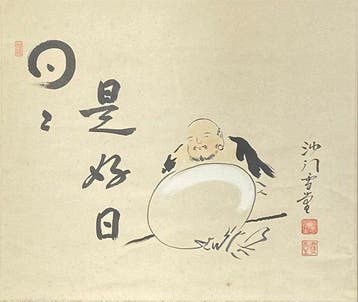 日々
是好日
沙門雪堂